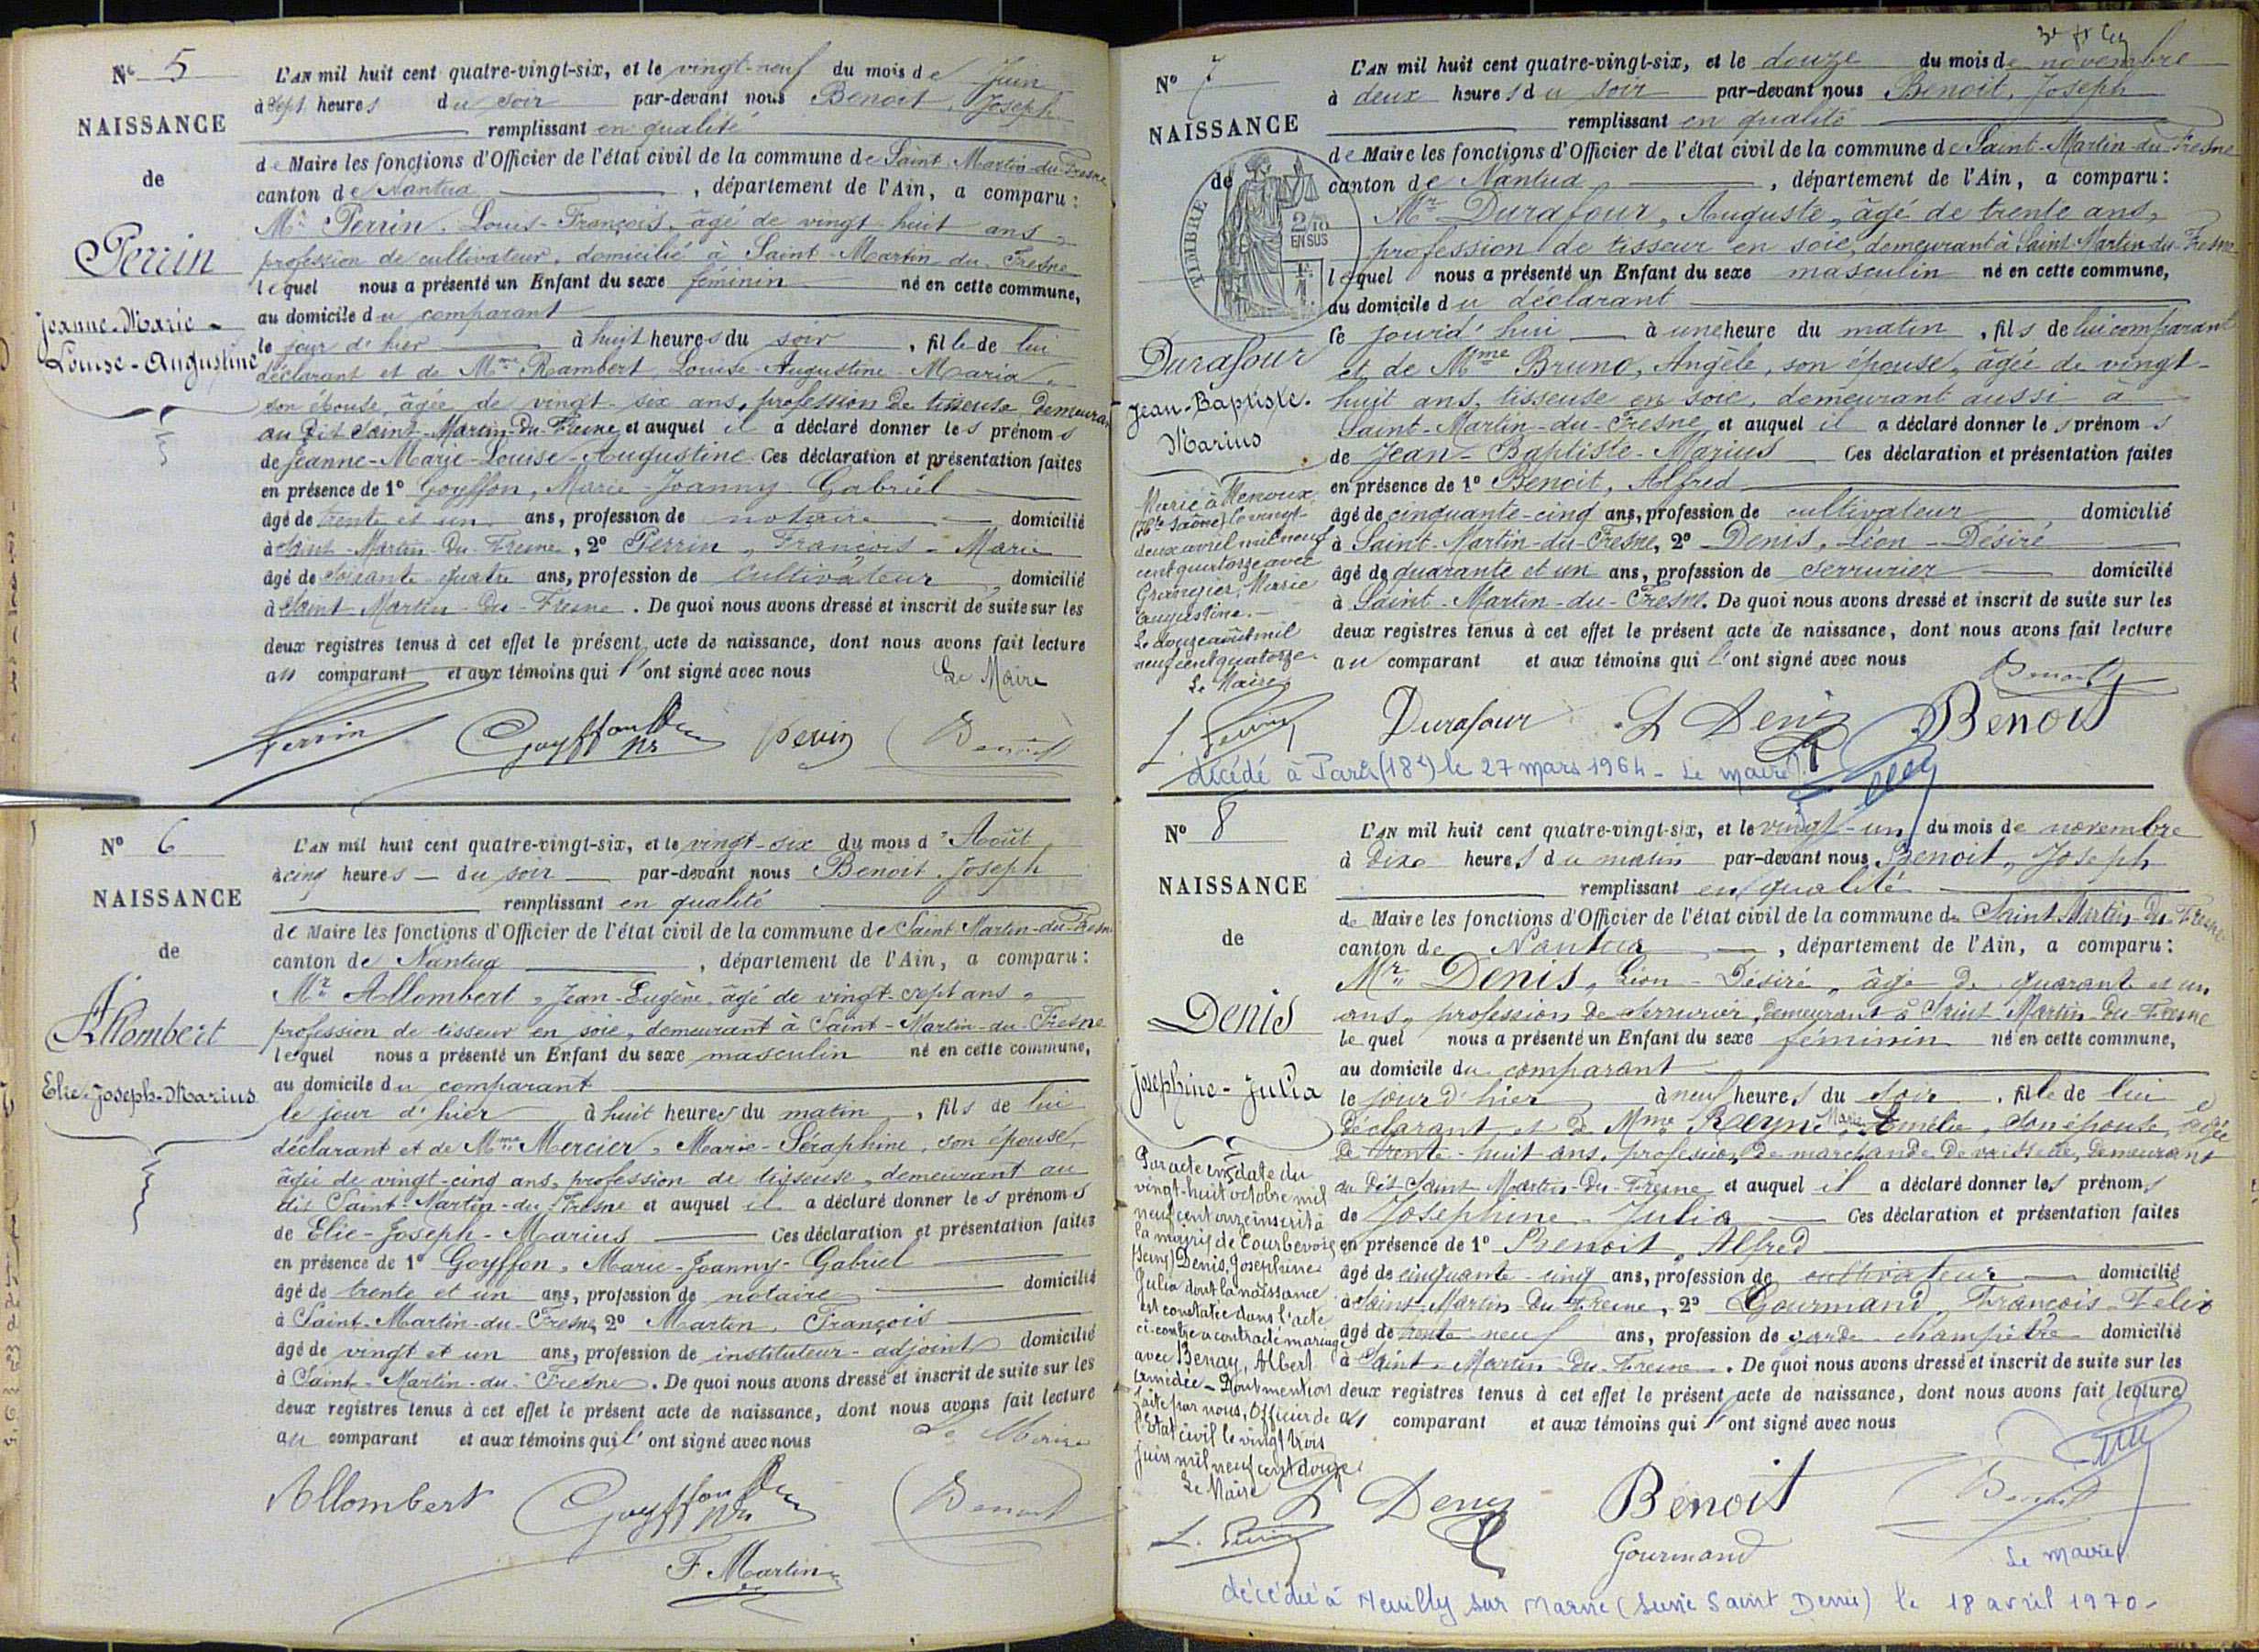 Nº 5
NAISSANCE
de
Perrin
Jeanne-Marie-
Louise-Augustine
L'AN mil huit cent quatre-vingt-six, et le vingt-neuf du mois de Juin
à sept heures du soir par-devant nous Benoit, Joseph
remplissant en qualité
de Maire les fonctions d'Officier de l'état civil de la commune de Saint-Martin-du-Fresne
canton de Nantua, département de l'Ain, a comparu :
Mr Perrin, Louis-François, âgé de vingt-huit ans,
profession de cultivateur, domicilié à Saint-Martin-du-Fresne
lequel nous a présenté un Enfant du sexe féminin né en cette commune,
au domicile du comparant
le jour d'hier à huit heures du soir, fille de lui
déclarant et de Mme Rambert, Louise-Augustine-Maria,
son épouse, âgée de vingt-six ans, profession de tisseuse, demeurant
au dit Saint-Martin-du-Fresne et auquel il a déclaré donner les prénoms
de Jeanne-Marie-Louise-Augustine Ces déclaration et présentation faites
en présence de 1º Goyffon, Marie-Joanny-Gabriel
âgé de trente et un ans, profession de notaire domicilié
à Saint-Martin-du-Fresne, 2º Perrin, François-Marie
âgé de soixante-quatre ans, profession de cultivateur domicilié
à Saint-Martin-du-Fresne. De quoi nous avons dressé et inscrit de suite sur les
deux registres tenus à cet effet le présent acte de naissance, dont nous avons fait lecture
au comparant et aux témoins qui l'ont signé avec nous Le Maire
Perrin Goyffon Perrin Benoit
Nº 6
NAISSANCE
de
Allombert
Elie-Joseph-Marius
L'AN mil huit cent quatre-vingt-six, et le vingt-six du mois d'Août
à cinq heures du soir par-devant nous Benoit, Joseph
remplissant en qualité
de Maire les fonctions d'Officier de l'état civil de la commune de Saint-Martin-du-Fresne
canton de Nantua, département de l'Ain, a comparu :
Mr Allombert, Jean-Eugène, âgé de vingt-sept ans,
profession de tisseur en soie, demeurant à Saint-Martin-du-Fresne
lequel nous a présenté un Enfant du sexe masculin né en cette commune,
au domicile du comparant
le jour d'hier à huit heures du matin, fils de lui
déclarant et de Mme Mercier, Marie-Séraphine, son épouse,
âgée de vingt-cinq ans, profession de tisseuse, demeurant au
dit Saint-Martin-du-Fresne et auquel il a déclaré donner les prénoms
de Elie-Joseph-Marius Ces déclaration et présentation faites
en présence de 1º Goyffon, Marie-Joanny-Gabriel
âgé de trente et un ans, profession de notaire domicilié
à Saint-Martin-du-Fresne, 2º Martin, François
âgé de vingt et un ans, profession de instituteur-adjoint domicilié
à Saint-Martin-du-Fresne. De quoi nous avons dressé et inscrit de suite sur les
deux registres tenus à cet effet le présent acte de naissance, dont nous avons fait lecture
au comparant et aux témoins qui l'ont signé avec nous Le Maire
Allombert Goyffon Benoit
F. Martin
Nº 7
NAISSANCE
de
TIMBRE
2/10
EN SUS
Durafour
Jean-Baptiste-
Marius
Marié à Menoux
(Hte Saône) le vingt-
deux avril mil neuf
cent quatorze avec
Grangier, Marie
Augustine.-
Le douze août mil
neuf cent quatorze
Le Maire
L. Perrin
L'AN mil huit cent quatre-vingt-six, et le douze du mois de novembre
à deux heures du soir par-devant nous Benoit, Joseph
remplissant en qualité
de Maire les fonctions d'Officier de l'état civil de la commune de Saint-Martin-du-Fresne
canton de Nantua, département de l'Ain, a comparu :
Mr Durafour, Auguste, âgé de trente ans,
profession de tisseur en soie, demeurant à Saint-Martin-du-Fresne
lequel nous a présenté un Enfant du sexe masculin né en cette commune,
au domicile du déclarant
ce jourd'hui à une heure du matin, fils de lui comparant
et de Mme Bruno, Angèle, son épouse, âgée de vingt-
huit ans, tisseuse en soie, demeurant aussi à
Saint-Martin-du-Fresne et auquel il a déclaré donner les prénoms
de Jean-Baptiste-Marius Ces déclaration et présentation faites
en présence de 1º Benoit, Alfred
âgé de cinquante-cinq ans, profession de cultivateur domicilié
à Saint-Martin-du-Fresne, 2º Denis, Léon-Désiré
âgé de quarante et un ans, profession de serrurier domicilié
à Saint-Martin-du-Fresne. De quoi nous avons dressé et inscrit de suite sur les
deux registres tenus à cet effet le présent acte de naissance, dont nous avons fait lecture
au comparant et aux témoins qui l'ont signé avec nous
Benoit
Durafour L Denis Benoit
décédé à Paris (18e) le 27 mars 1964 - Le maire
Nº 8
NAISSANCE
de
Denis
Joséphine-Julia
Par acte en date du
vingt-huit octobre mil
neuf cent onze inscrit à
la mairie de Courbevoie
(Seine) Denis, Joséphine
Julia dont la naissance
est constatée dans l'acte
ci-contre a contracté mariage
avec Benay, Albert
Amédée - Dont mention
faite par nous, Officier de
l'Etat civil le vingt trois
juin mil neuf cent douze
Le Maire
L. Perrin
L'AN mil huit cent quatre-vingt-six, et le vingt-un du mois de novembre
à dix heures du matin par-devant nous Benoit, Joseph
remplissant en qualité
de Maire les fonctions d'Officier de l'état civil de la commune de Saint-Martin-du-Fresne
canton de Nantua, département de l'Ain, a comparu :
Mr Denis, Léon-Désiré, âgé de quarante et un
ans, profession de serrurier, demeurant à Saint-Martin-du-Fresne
lequel nous a présenté un Enfant du sexe féminin né en cette commune,
au domicile du comparant
le jour d'hier à neuf heures du soir, fille de lui
déclarant et de Mme Reyne Marie Amélie, son épouse, âgée
de trente-huit ans, profession de marchande de vaisselle, demeurant
au dit Saint-Martin-du-Fresne et auquel il a déclaré donner les prénoms
de Joséphine-Julia Ces déclaration et présentation faites
en présence de 1º Benoit, Alfred
âgé de cinquante-cinq ans, profession de cultivateur domicilié
à Saint-Martin-du-Fresne, 2º Gourmand, François-Félix
âgé de trente-neuf ans, profession de garde-champêtre domicilié
à Saint-Martin-du-Fresne. De quoi nous avons dressé et inscrit de suite sur les
deux registres tenus à cet effet le présent acte de naissance, dont nous avons fait lecture
au comparant et aux témoins qui l'ont signé avec nous
L Denis Benoit Benoit
Gourmand
Le maire
décédée à Neuilly sur Marne (Seine Saint Denis) le 18 avril 1970-